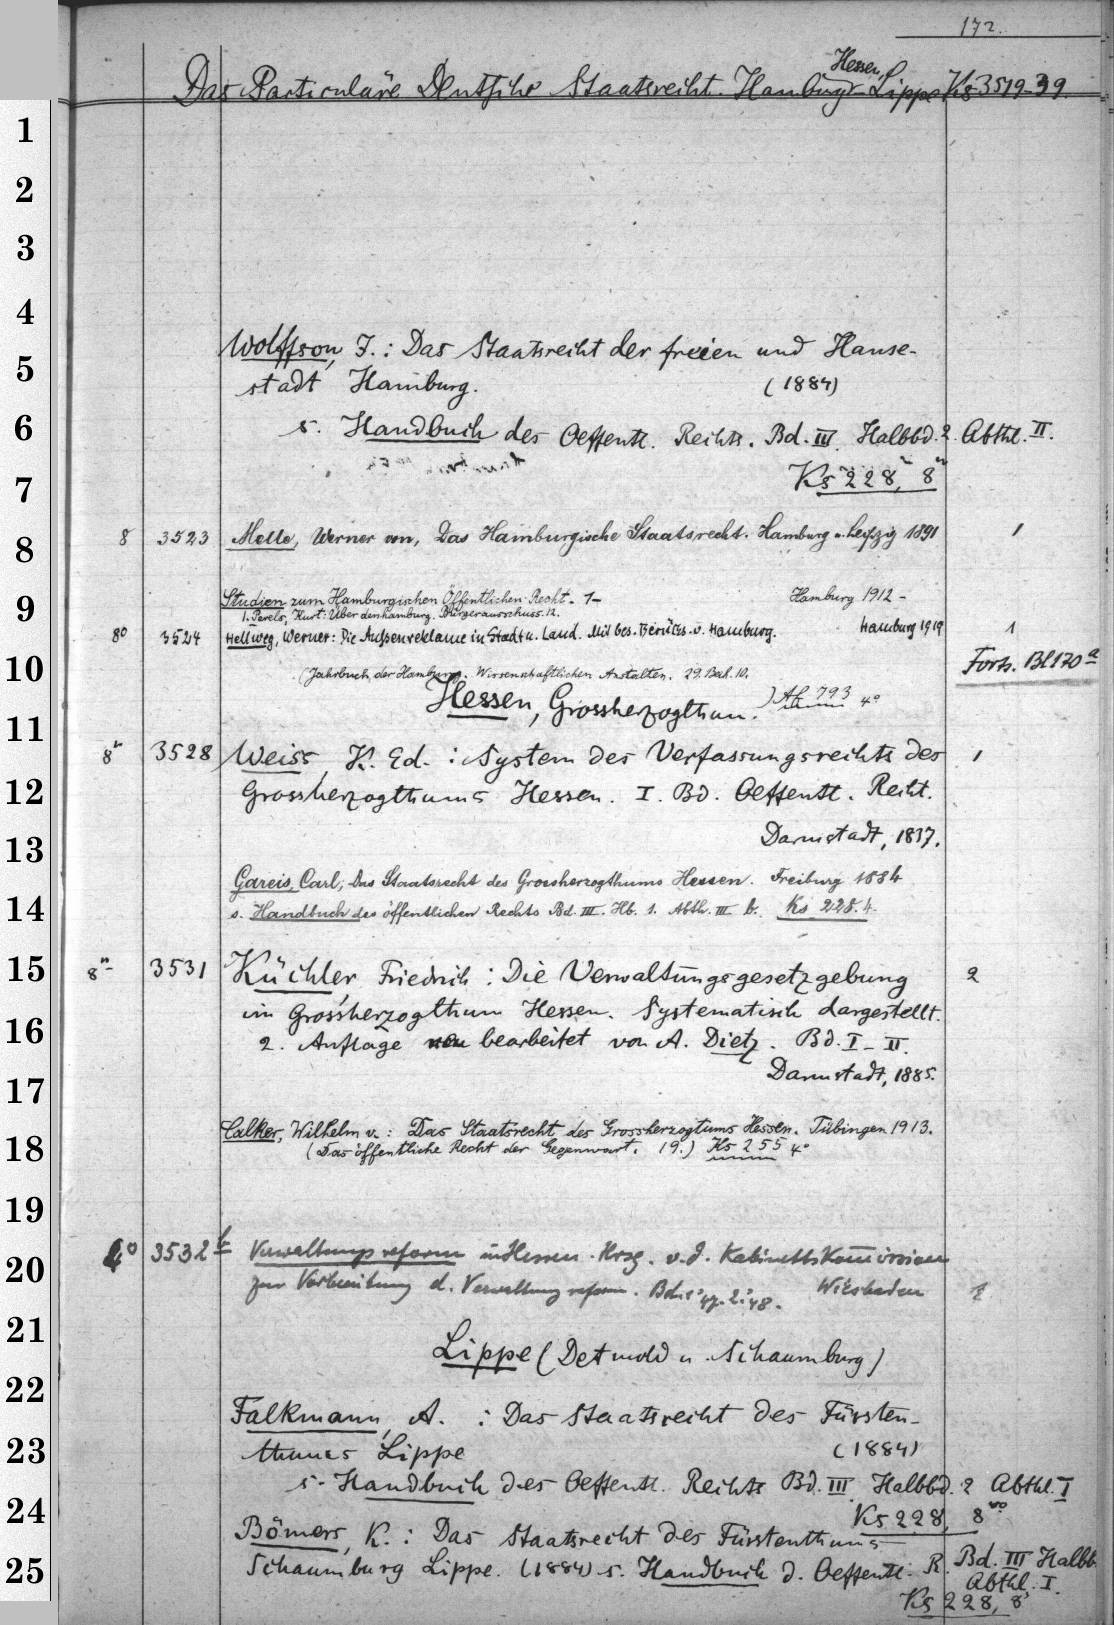 172.
Das Particuläre Deutsche Staatsrecht. Hamburg, Hessen, Lippe Ks 3519-39.
1
2
3
4
Wolffson, I.: Das Staatsrecht der freien und Hanse-
5
stadt Hamburg. (1884)
6
s. Handbuch des Oeffentl. Rechts. Bd. III. Halbbd. 2. Abthl. II.
7
Ks 228, 8°
8
8 3523 Melle, Werner von, Das Hamburgische Staatsrecht. Hamburg u. Leipzig 1891 1
9
Studien zum Hamburgischen Öffentlichen Recht. 1- Hamburg 1912 -
1. Perels, Kurt: Über den hamburg. Bürgerausschuss. 12.
8° 3524 Hellweg, Werner: Die Außenreklame in Stadt u. Land. Mit bes. Berücks. v. Hamburg. Hamburg 1919 1
Forts. Bl 170a
10
(Jahrbuch der Hamburg. Wissenschaftlichen Anstalten. 29. Beih. 10.) 793 4°
Hessen, Grossherzogthum.
11
8° 3528 Weiss, K. Ed.: System des Verfassungsrechts des 1
12
Grossherzogthums Hessen. I. Bd. Oeffentl. Recht.
13
Darmstadt, 1837.
Gareis, Carl, Das Staatsrecht des Grossherzogthums Hessen. Freiburg 1884
14
s. Handbuch des öffentlichen Rechts Bd. III. Hb. 1. Abth. III b. Ks 228. 4.
15
8° 3531 Küchler, Friedrich: Die Verwaltungsgesetzgebung 2
im Grossherzogthum Hessen. Systematisch dargestellt.
16
2. Auflage neu bearbeitet von A. Dietz. Bd. I-II.
17
Darmstadt, 1885.
Calker, Wilhelm v.: Das Staatsrecht des Grossherzogtums Hessen. Tübingen 1913.
18
(Das öffentliche Recht der Gegenwart. 19.) Ks 255 4°
19
4° 3532 b Verwaltungsreform in Hessen. Hrsg. v. d. Kabinettskommission
20
zur Vorbereitung d. Verwaltungsreform. Bd. 1.'47. 2.'48. Wiesbaden
21
Lippe (Detmold u. Schaumburg)
22
Falkmann, A.: Das Staatsrecht des Fürsten-
23
thumes Lippe (1884)
s. Handbuch des Oeffentl. Rechts Bd. III Halbbd. 2 Abthl. I
24
Ks 228, 8vo
Bömers, K.: Das Staatsrecht des Fürstenthums
25
Schaumburg Lippe. (1884) s. Handbuch d. Oeffentl. R. Bd. III Halbb.
Abthl. I.
Ks 228, 8°